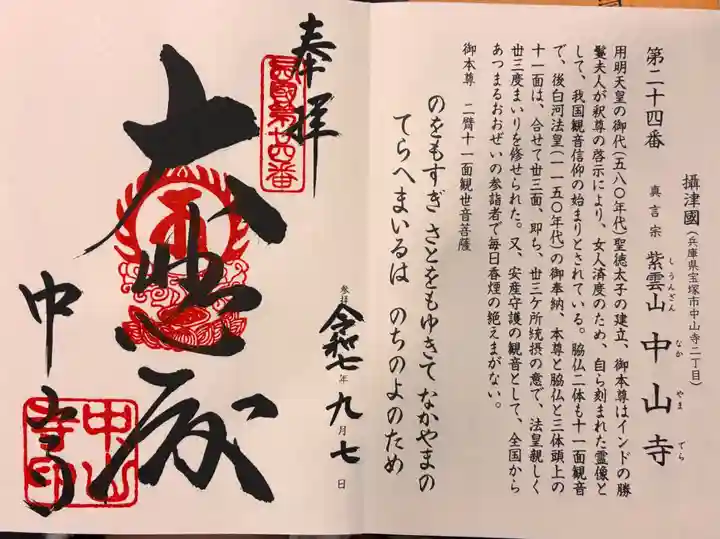 第二十四番
攝津國(兵庫県宝塚市中山寺二丁目)
真言宗 紫雲山 中山寺
しうんざん なか やま でら
用明天皇の御代(五八〇年代)聖徳太子の建立、御本尊はインドの勝
鬘夫人が釈尊の啓示により、女人済度のため、自ら刻まれた霊像と
して、我国観音信仰の始まりとされている。脇仏二体も十一面観音
で、後白河法皇(一一五〇年代)の御奉納、本尊と脇仏と三体頭上の
十一面は、合せて丗三面、即ち、丗三ケ所統摂の意で、法皇親しく
丗三度まいりを修せられた。又、安産守護の観音として、全国から
あつまるおおぜいの参詣者で毎日香煙の絶えまがない。
御本尊 二臂十一面観世音菩薩
のをもすぎ さとをもゆきて なかやまの
てらへまいるは のちのよのため
奉拝
西国第廿四番
大悲殿
中山寺
中山寺印
参拝 令和七年九月七日